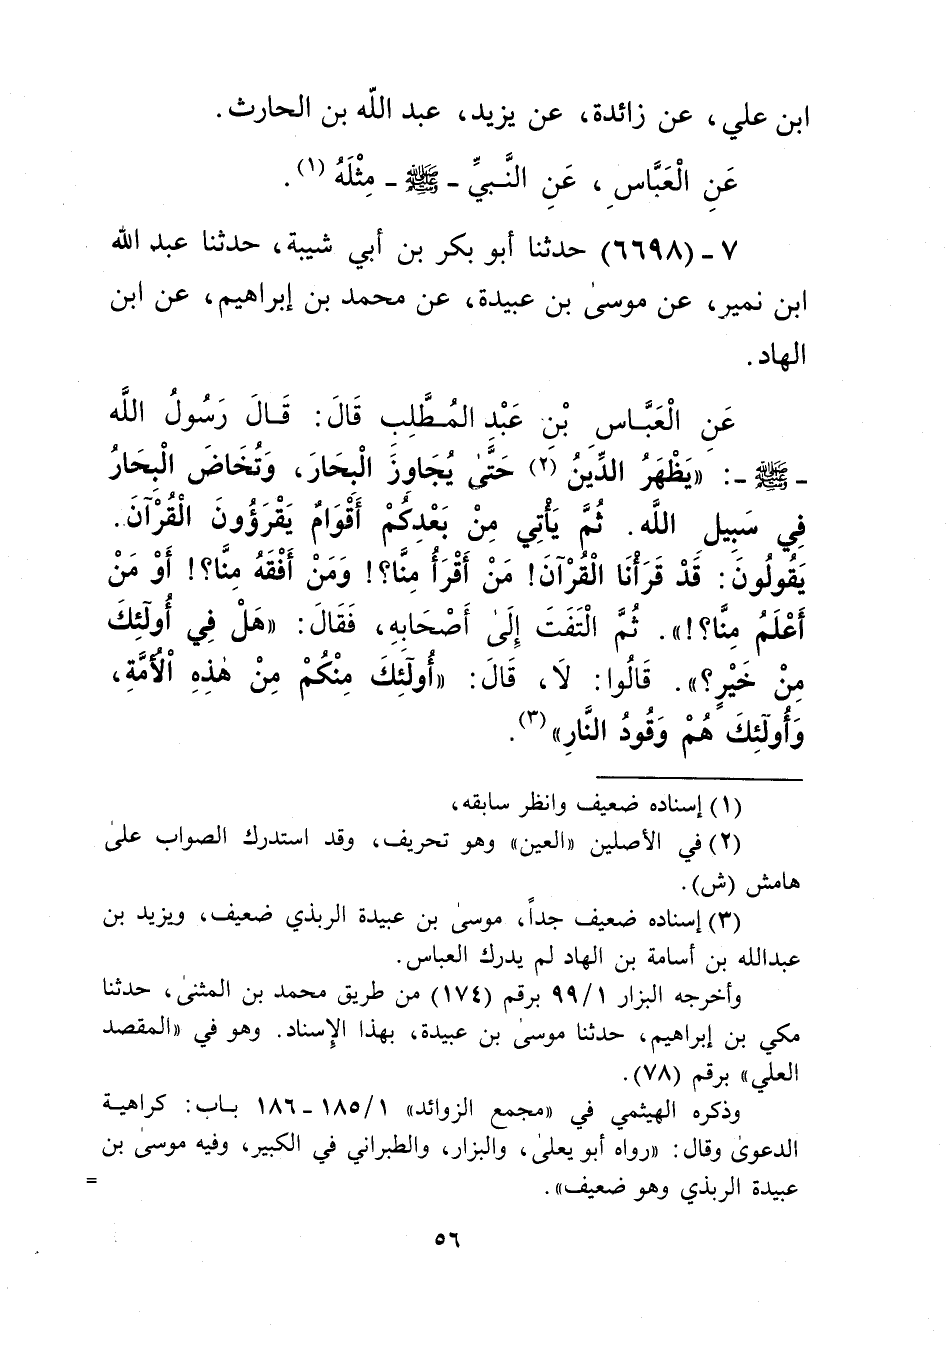 ابن علي، عن زائدة، عن يزيد، عبد اللّه بن الحارث.
عَنِ الْعَبَّاسِ، عَنِ النَّبيِّ - ﷺ - مِثْلَهُ (١).
٧ - (٦٦٩٨) حدثنا أبو بكر بن أبي شيبة، حدثنا عبد الله
ابن نمير، عن موسىٰ بن عبيدة، عن محمد بن إبراهيم، عن ابن
الهاد.
عَنِ الْعَبَّاسِ بْنِ عَبْدِ المُطَّلِبِ قَالَ: قَالَ رَسُولُ اللَّه
- ﷺ -: «يَظْهَرُ الدِّينُ (٢) حَتَّىٰ يُجَاوِزَ الْبِحَارَ، وَتُخَاضَ الْبِحَارُ
فِي سَبِيلِ اللَّه. ثُمَّ يَأْتِي مِنْ بَعْدِكُمْ أَقْوَامٌ يَقْرَؤُونَ الْقُرْآنَ.
يَقُولُونَ: قَدْ قَرَأْنَا الْقُرْآنَ! مَنْ أَقْرَأُ مِنَّا؟! وَمَنْ أَفْقَهُ مِنَّا؟! أَوْ مَنْ
أَعْلَمُ مِنَّا؟!». ثُمَّ الْتَفَتَ إِلَىٰ أَصْحَابِهِ، فَقَالَ: «هَلْ فِي أُولَئِكَ
مِنْ خَيْرٍ؟». قَالُوا: لَا، قَالَ: «أُولَئِكَ مِنْكُمْ مِنْ هٰذِهِ الْأُمَّةِ،
وَأُولَئِكَ هُمْ وَقُودُ النَّارِ» (٣).
(١) إسناده ضعيف وانظر سابقه،
(٢) في الأصلين «العين» وهو تحريف، وقد استدرك الصواب علىٰ
هامش (ش).
(٣) إسناده ضعيف جداً، موسىٰ بن عبيدة الربذي ضعيف، ويزيد بن
عبدالله بن أسامة بن الهاد لم يدرك العباس.
وأخرجه البزار ٩٩/١ برقم (١٧٤) من طريق محمد بن المثنىٰ، حدثنا
مكي بن إبراهيم، حدثنا موسىٰ بن عبيدة، بهذا الإسناد. وهو في «المقصد
العلي» برقم (٧٨).
وذكره الهيثمي في «مجمع الزوائد» ١٨٥/١ - ١٨٦ باب: كراهية
الدعوىٰ وقال: «رواه أبو يعلىٰ، والبزار، والطبراني في الكبير، وفيه موسىٰ بن
عبيدة الربذي وهو ضعيف».
=
٥٦